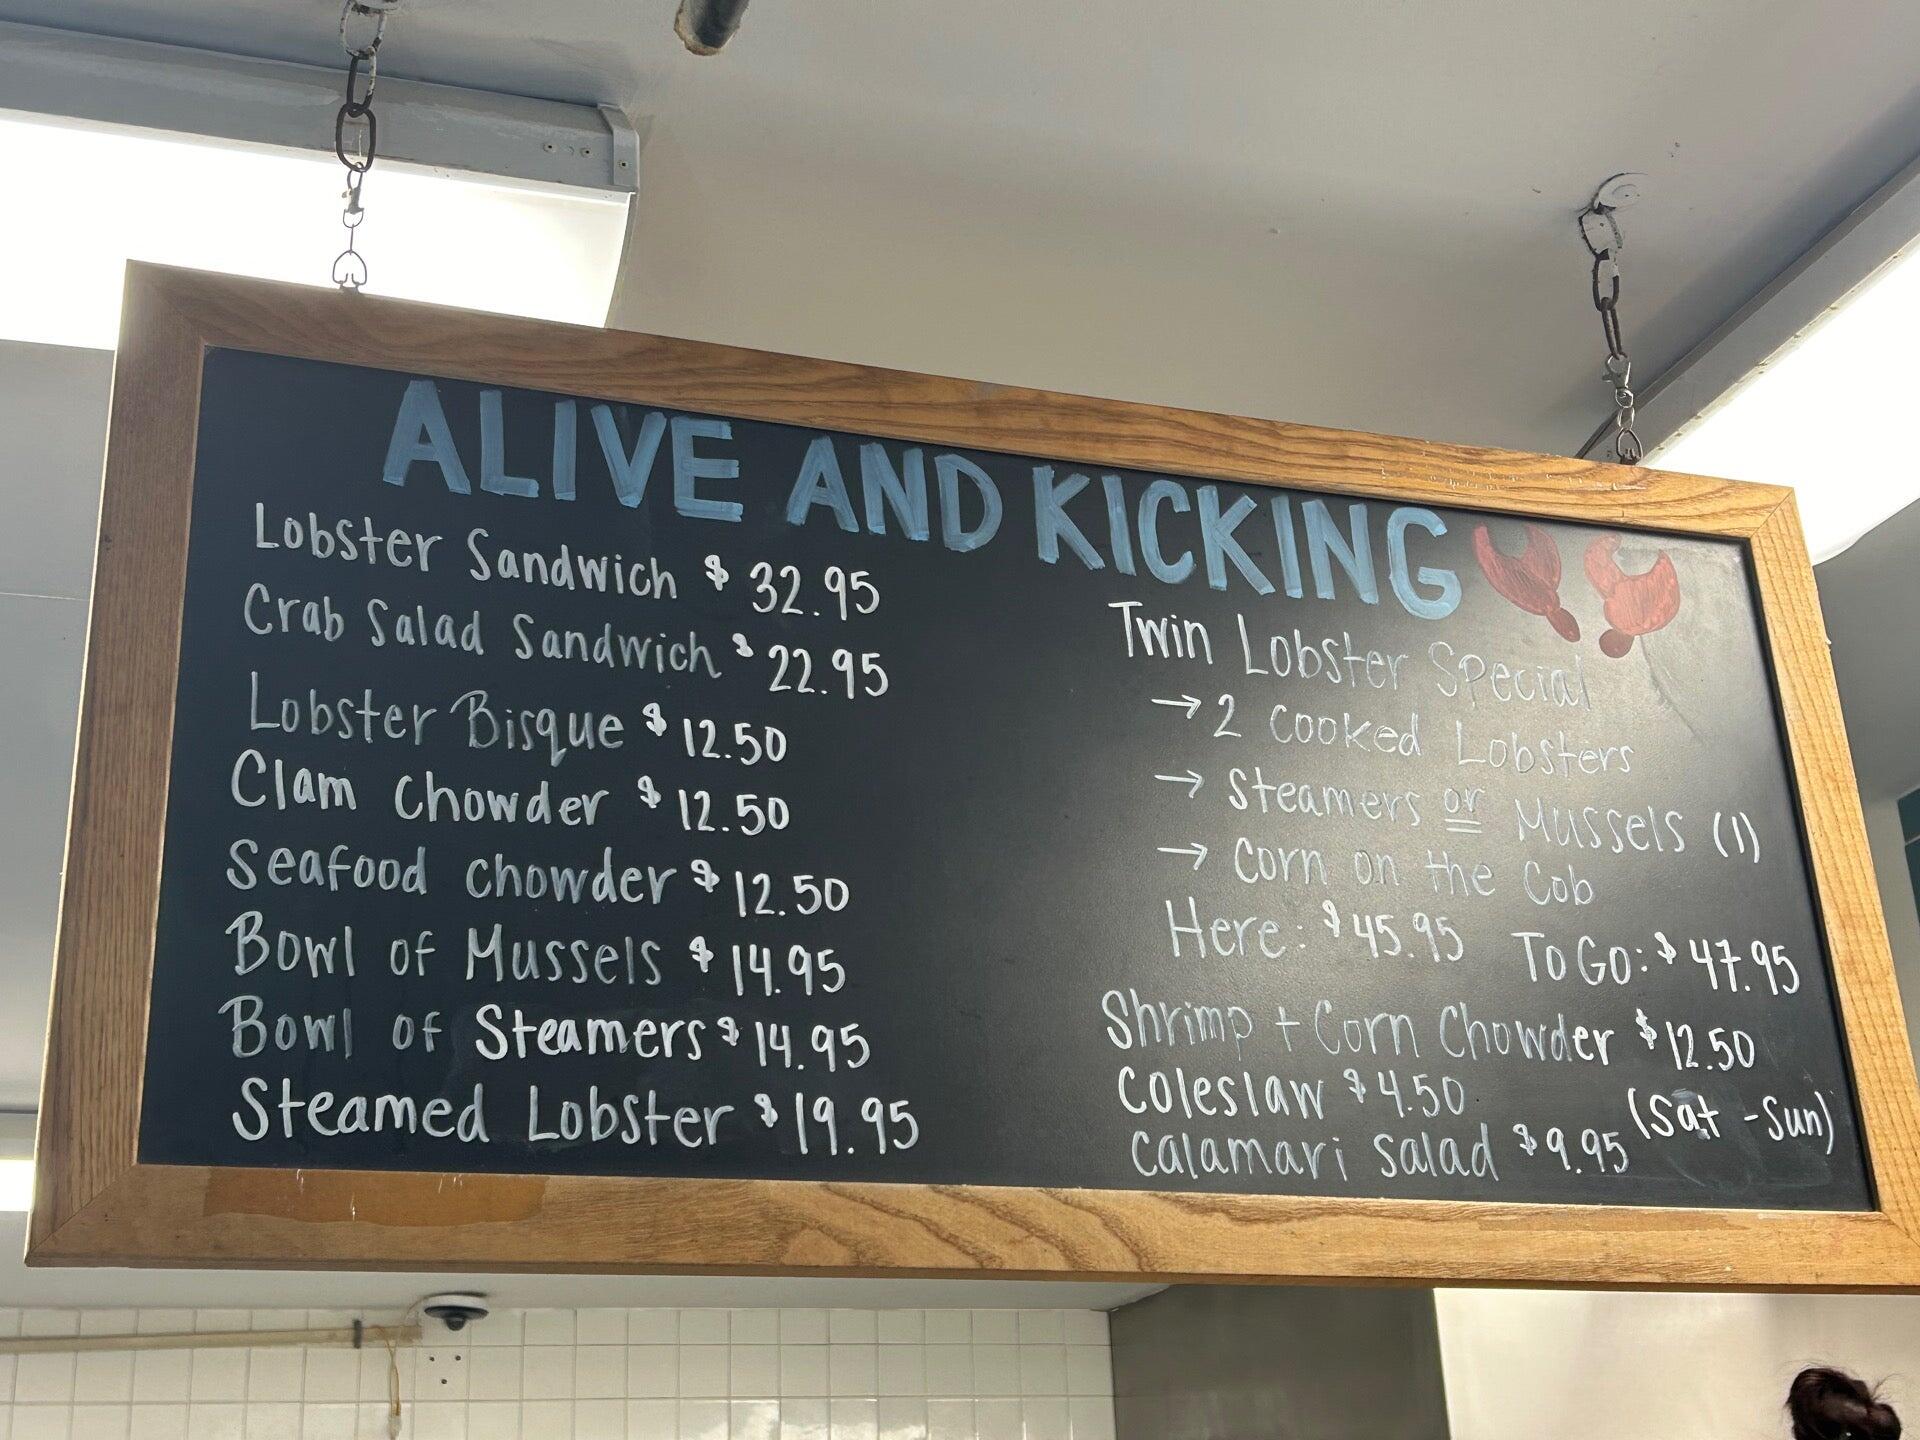 ALIVE AND KICKING
Lobster Sandwich $ 32.95
Crab Salad Sandwich $ 22.95
Lobster Bisque $ 12.50
Clam Chowder $ 12.50
Seafood Chowder $ 12.50
Bowl of Mussels $ 14.95
Bowl of Steamers $ 14.95
Steamed Lobster $ 19.95
Twin Lobster Special
→ 2 Cooked Lobsters
→ Steamers or Mussels (1)
→ Corn on the Cob
Here: $45.95 To Go: $ 47.95
Shrimp + Corn Chowder $12.50
Coleslaw $4.50 (Sat - Sun)
Calamari Salad $9.95